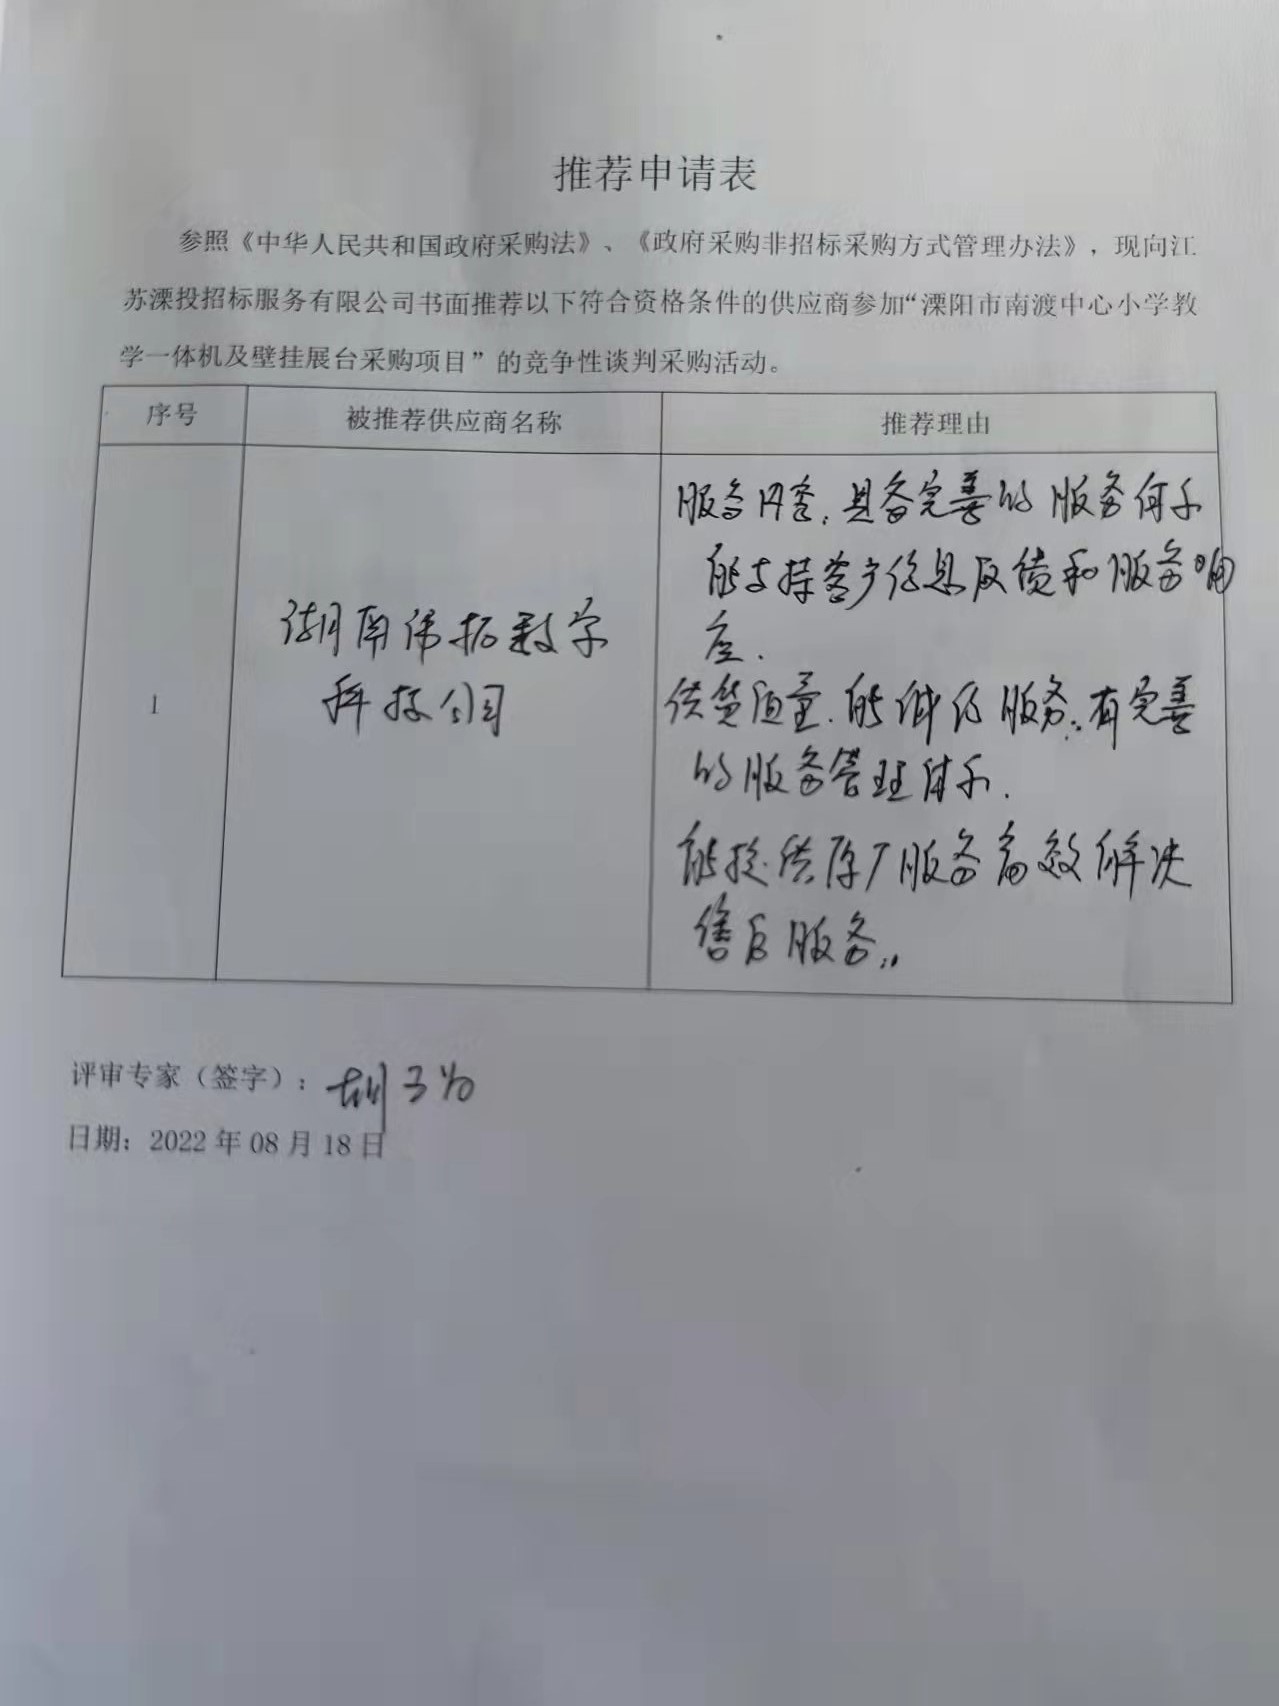 推荐申请表
参照《中华人民共和国政府采购法》、《政府采购非招标采购方式管理办法》，现向江
苏溧投招标服务有限公司书面推荐以下符合资格条件的供应商参加“溧阳市南渡中心小学教
学一体机及壁挂展台采购项目”的竞争性谈判采购活动。
序号 被推荐供应商名称 推荐理由
1
湖南伟拓数字
科技公司
服务内容，具备完善的服务体系
能支持客户信息反馈和服务响
应.
供货质量.能供给服务，有完善
的服务管理体系.
能提供原厂服务高效解决
售后服务，
评审专家（签字）：胡
日期：2022年08月18日